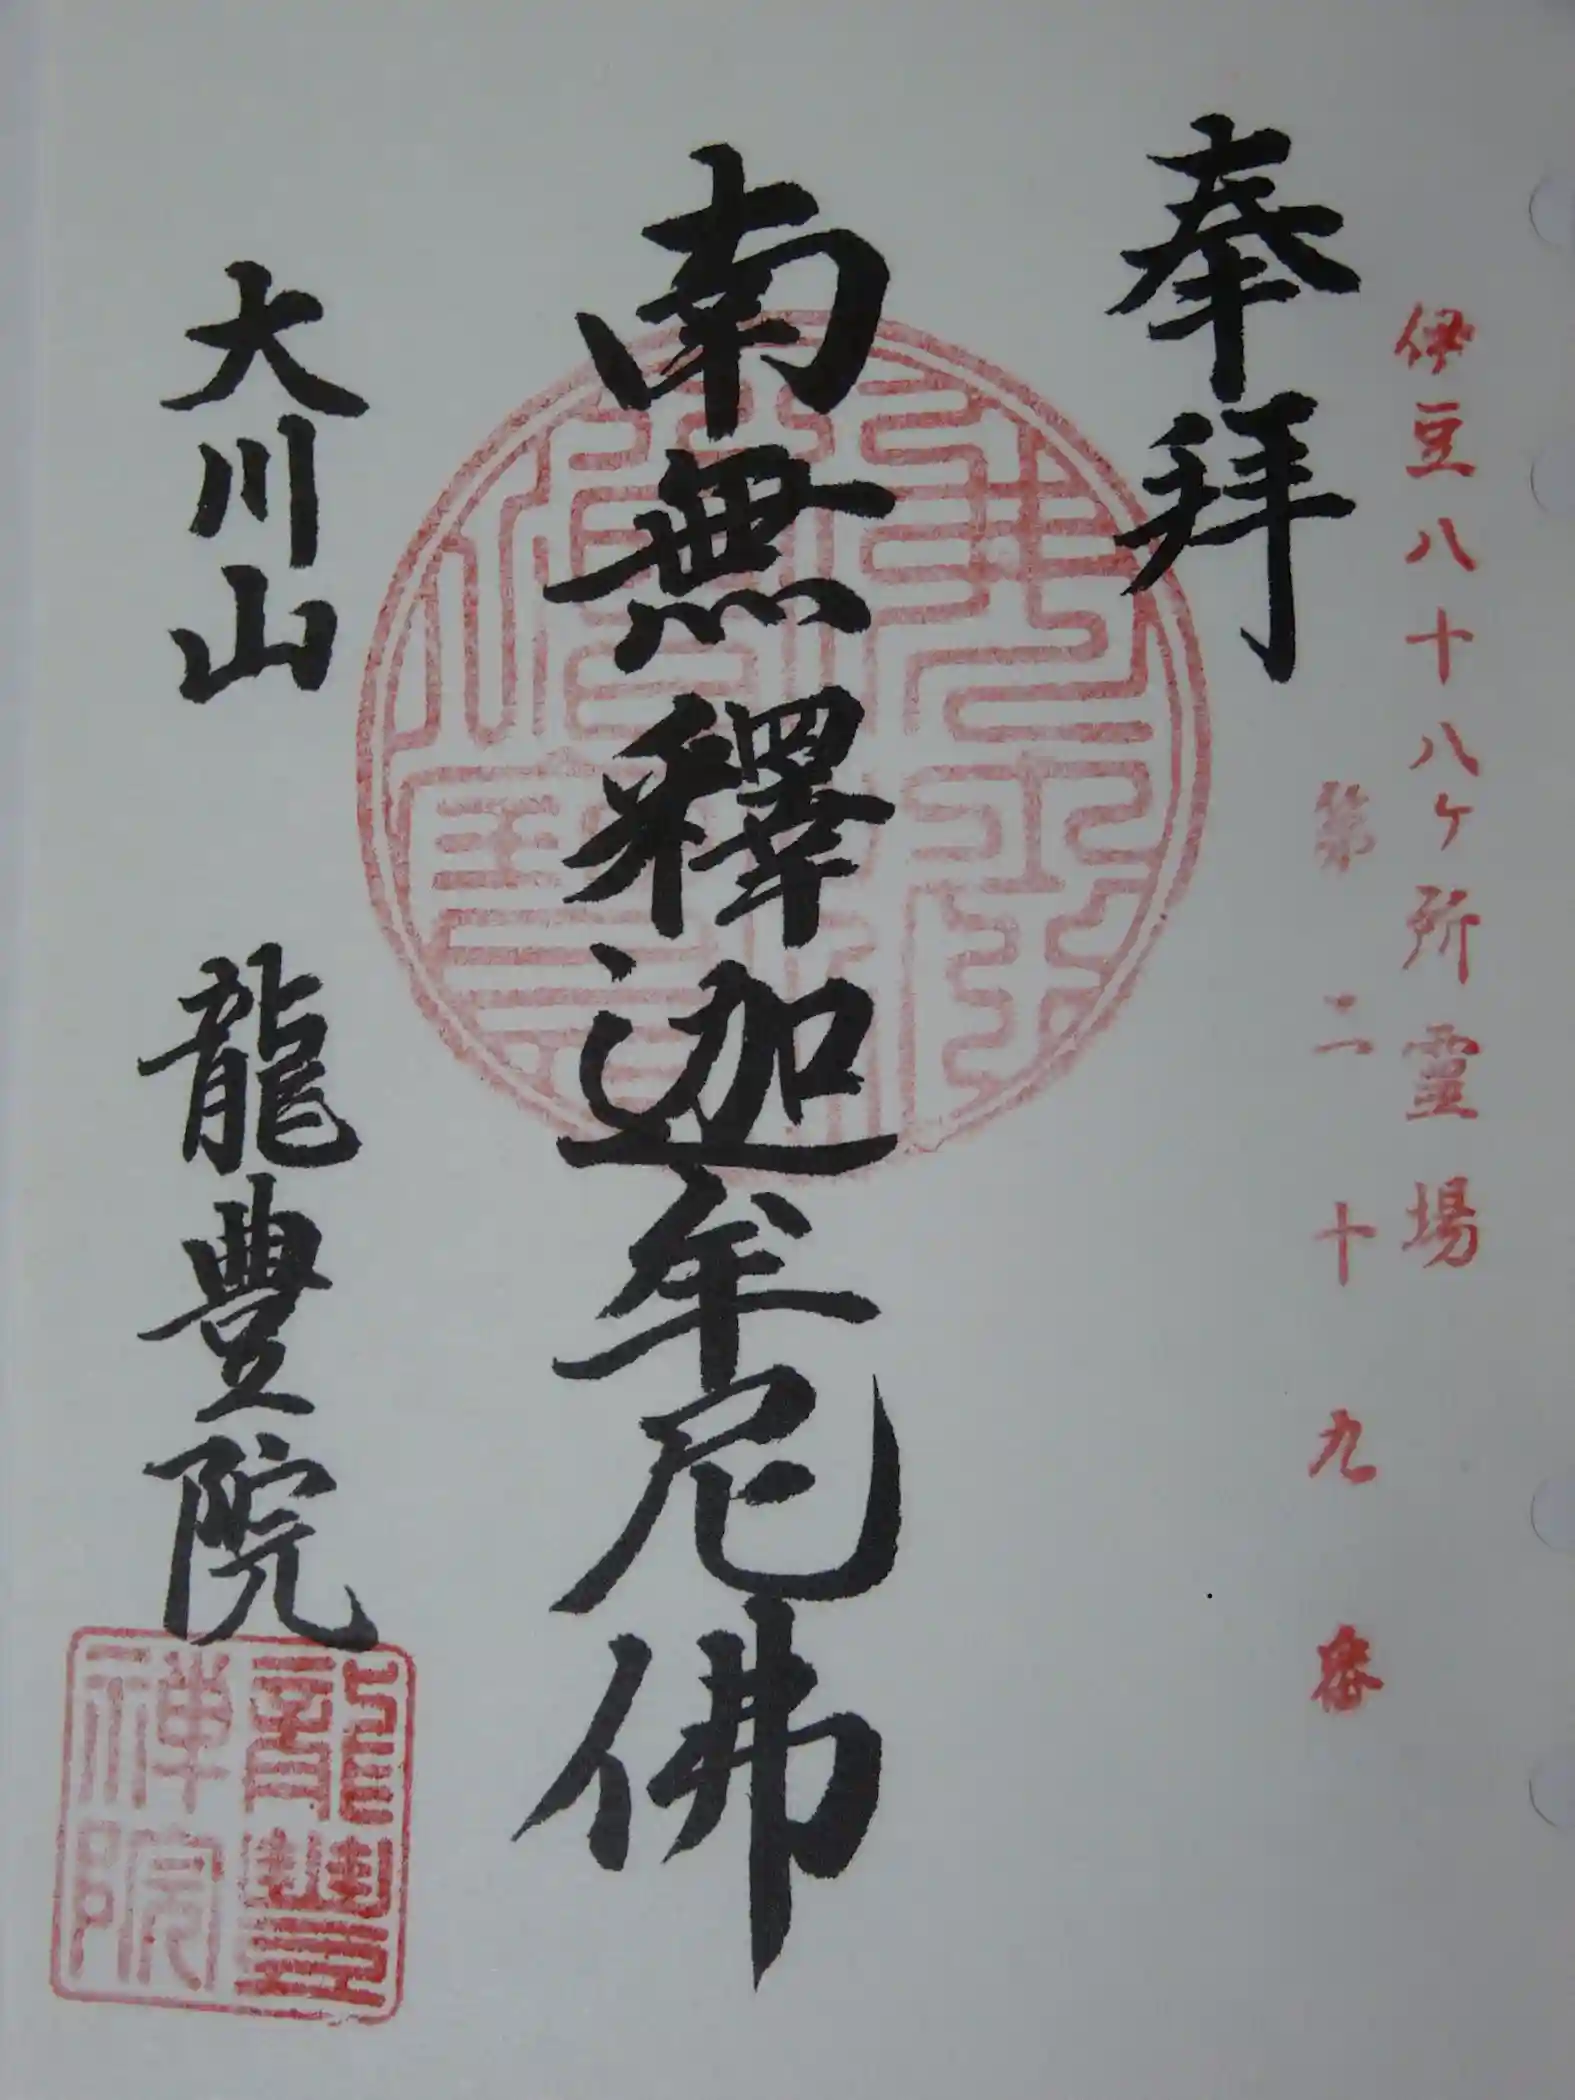 伊豆八十八ヶ所霊場
第二十九番
奉拜
南無釋迦牟尼佛
大川山 龍豊院
龍豊
禅院